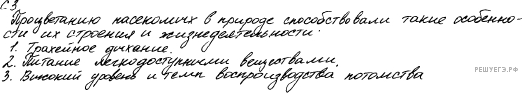 С3
Процветанию насекомых в природе способствовали такие особенно-
сти их строения и жизнедеятельности:
1. Трахейное дыхание.
2. Питание легкодоступными веществами.
3. Высокий уровень и темп воспроизводства потомства
РЕШУЕГЭ.РФ